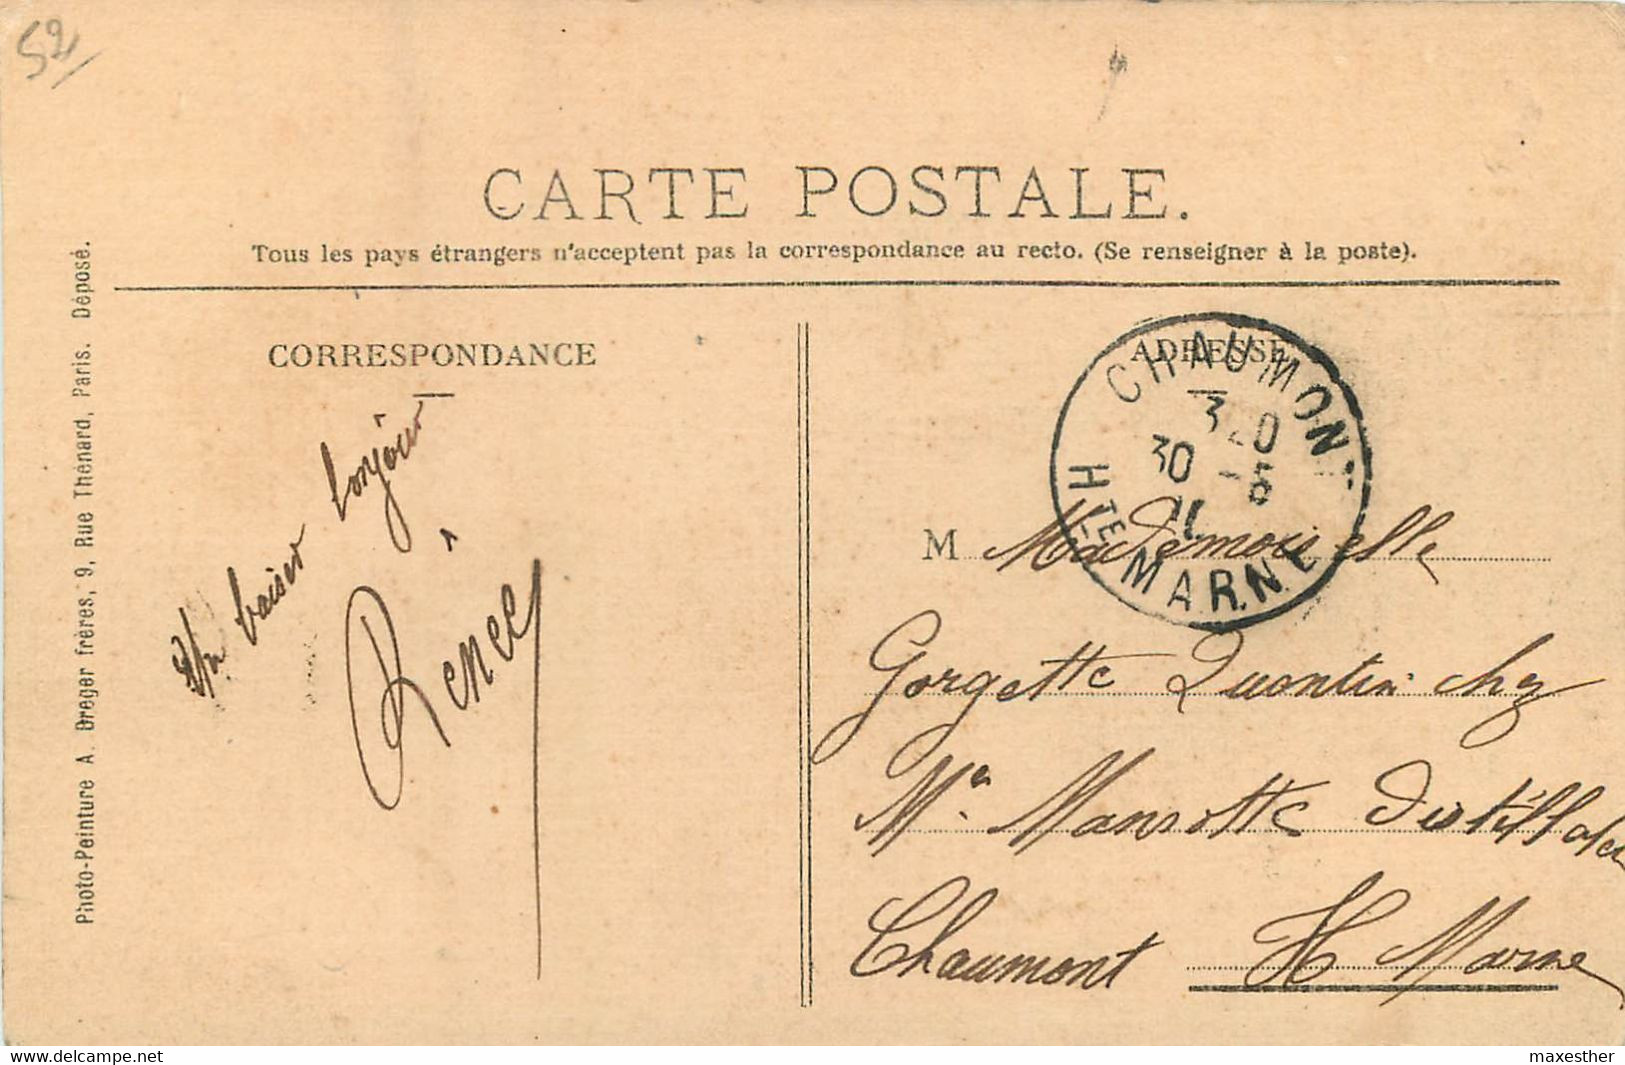 52
CARTE POSTALE.
Tous les pays étrangers n'acceptent pas la correspondance au recto. (Se renseigner à la poste).
Photo-Peinture A. Breger frères, 9, Rue Thénard, Paris. Déposé.
CORRESPONDANCE
Un baiser bonjour
Renée
ADRESSE
CHAUMONT
3 20
30 -5
11
HTE MARNE
M Mademoiselle
Gorgette Quontin chez
Mr Mansotte distillateur
Chaumont H Marne
www.delcampe.net
maxesther